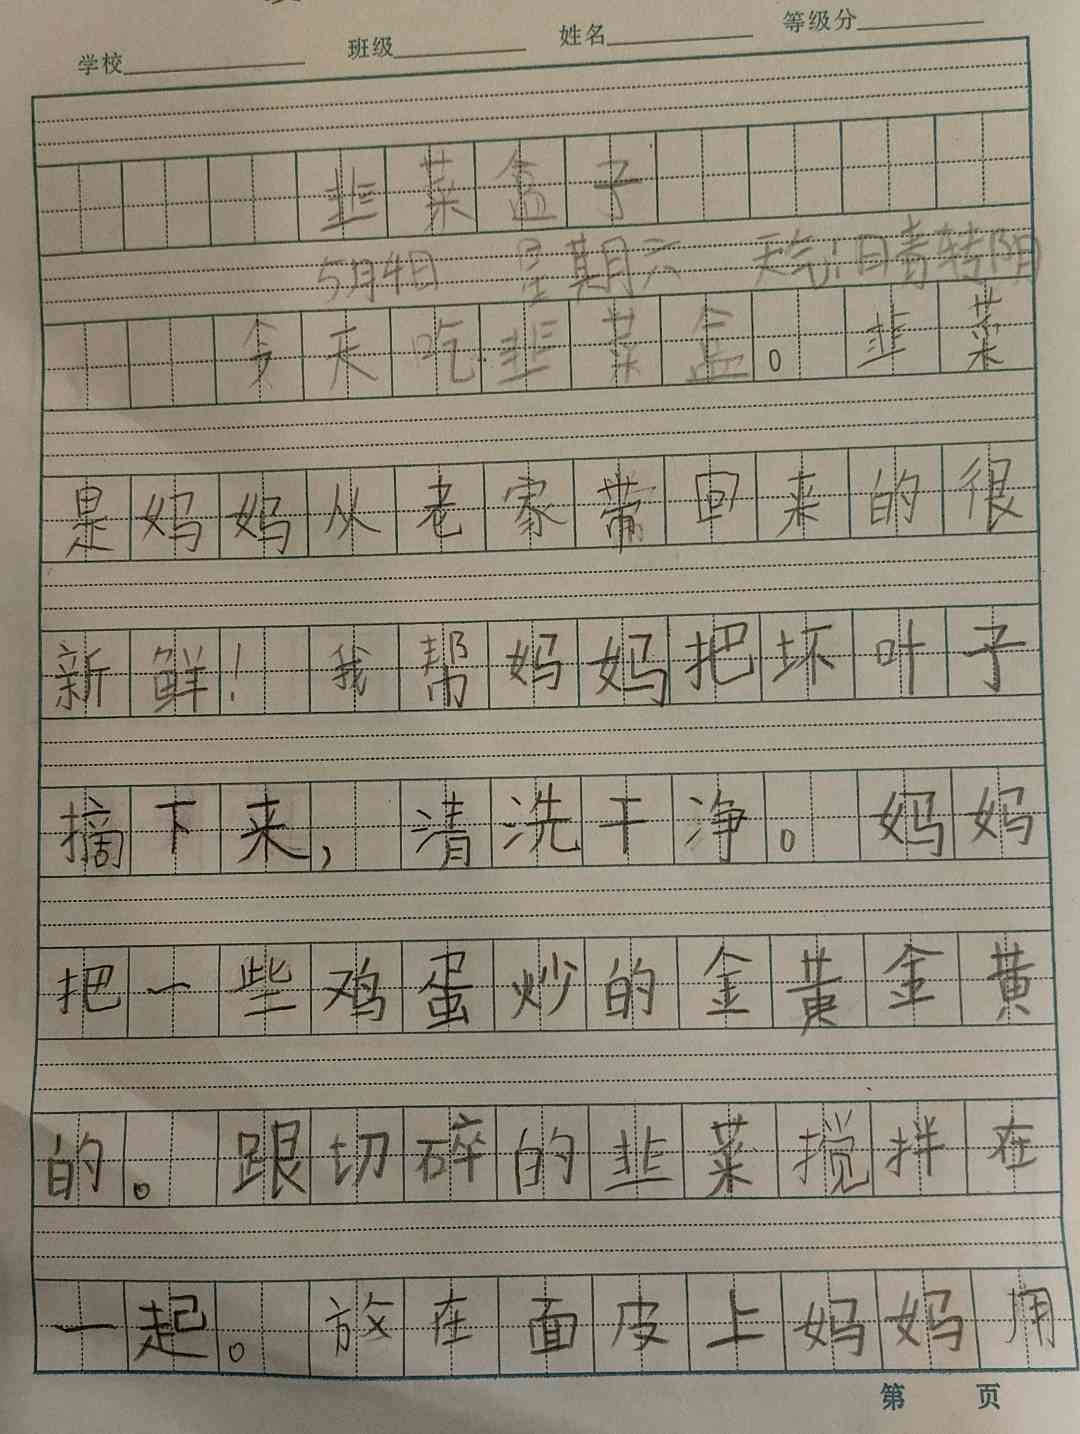 学校 班级 姓名 等级分
韭菜盒子
5月4日 星期六 天气:晴转阴
今天吃韭菜盒。韭菜
是妈妈从老家带回来的很
新鲜!我帮妈妈把坏叶子
摘下来,清洗干净。妈妈
把一些鸡蛋炒的金黄金黄
的。跟切碎的韭菜搅拌在
一起。放在面皮上妈妈用
第 页